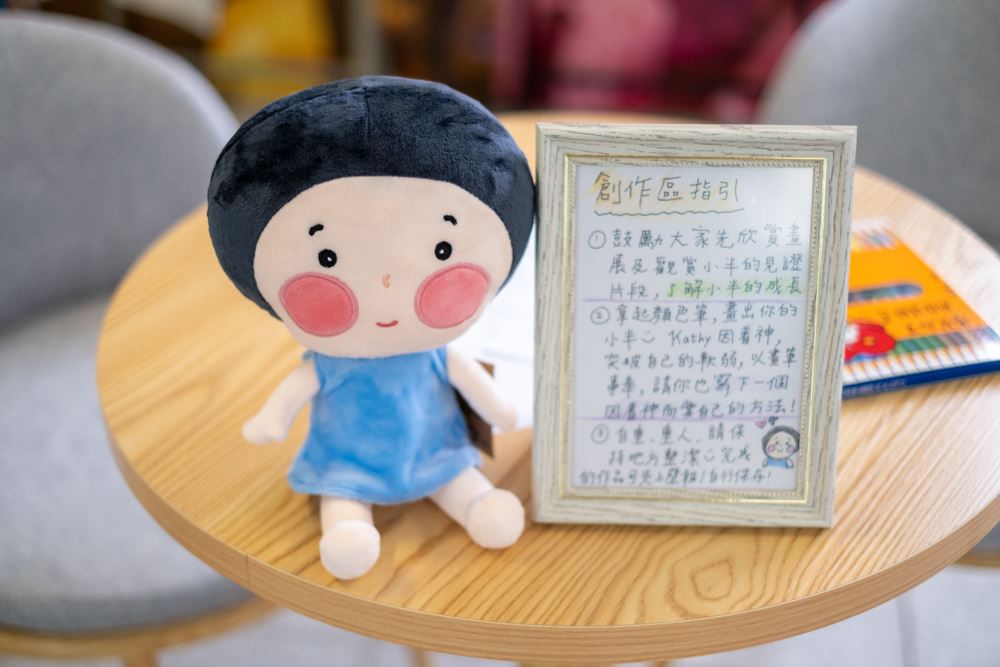 創作區指引
① 鼓勵大家先欣賞畫
展及觀賞小半的見證
片段，了解小半的成長
② 拿起顏色筆，畫出你的
小半 Kathy 因着神，
突破自己的軟弱，以畫筆
事奉，請你也寫下一個
因着神而愛自己的方法！
③ 自重、重人，請保
持地方整潔 完成
的作品可貼上壁報／自行保存！